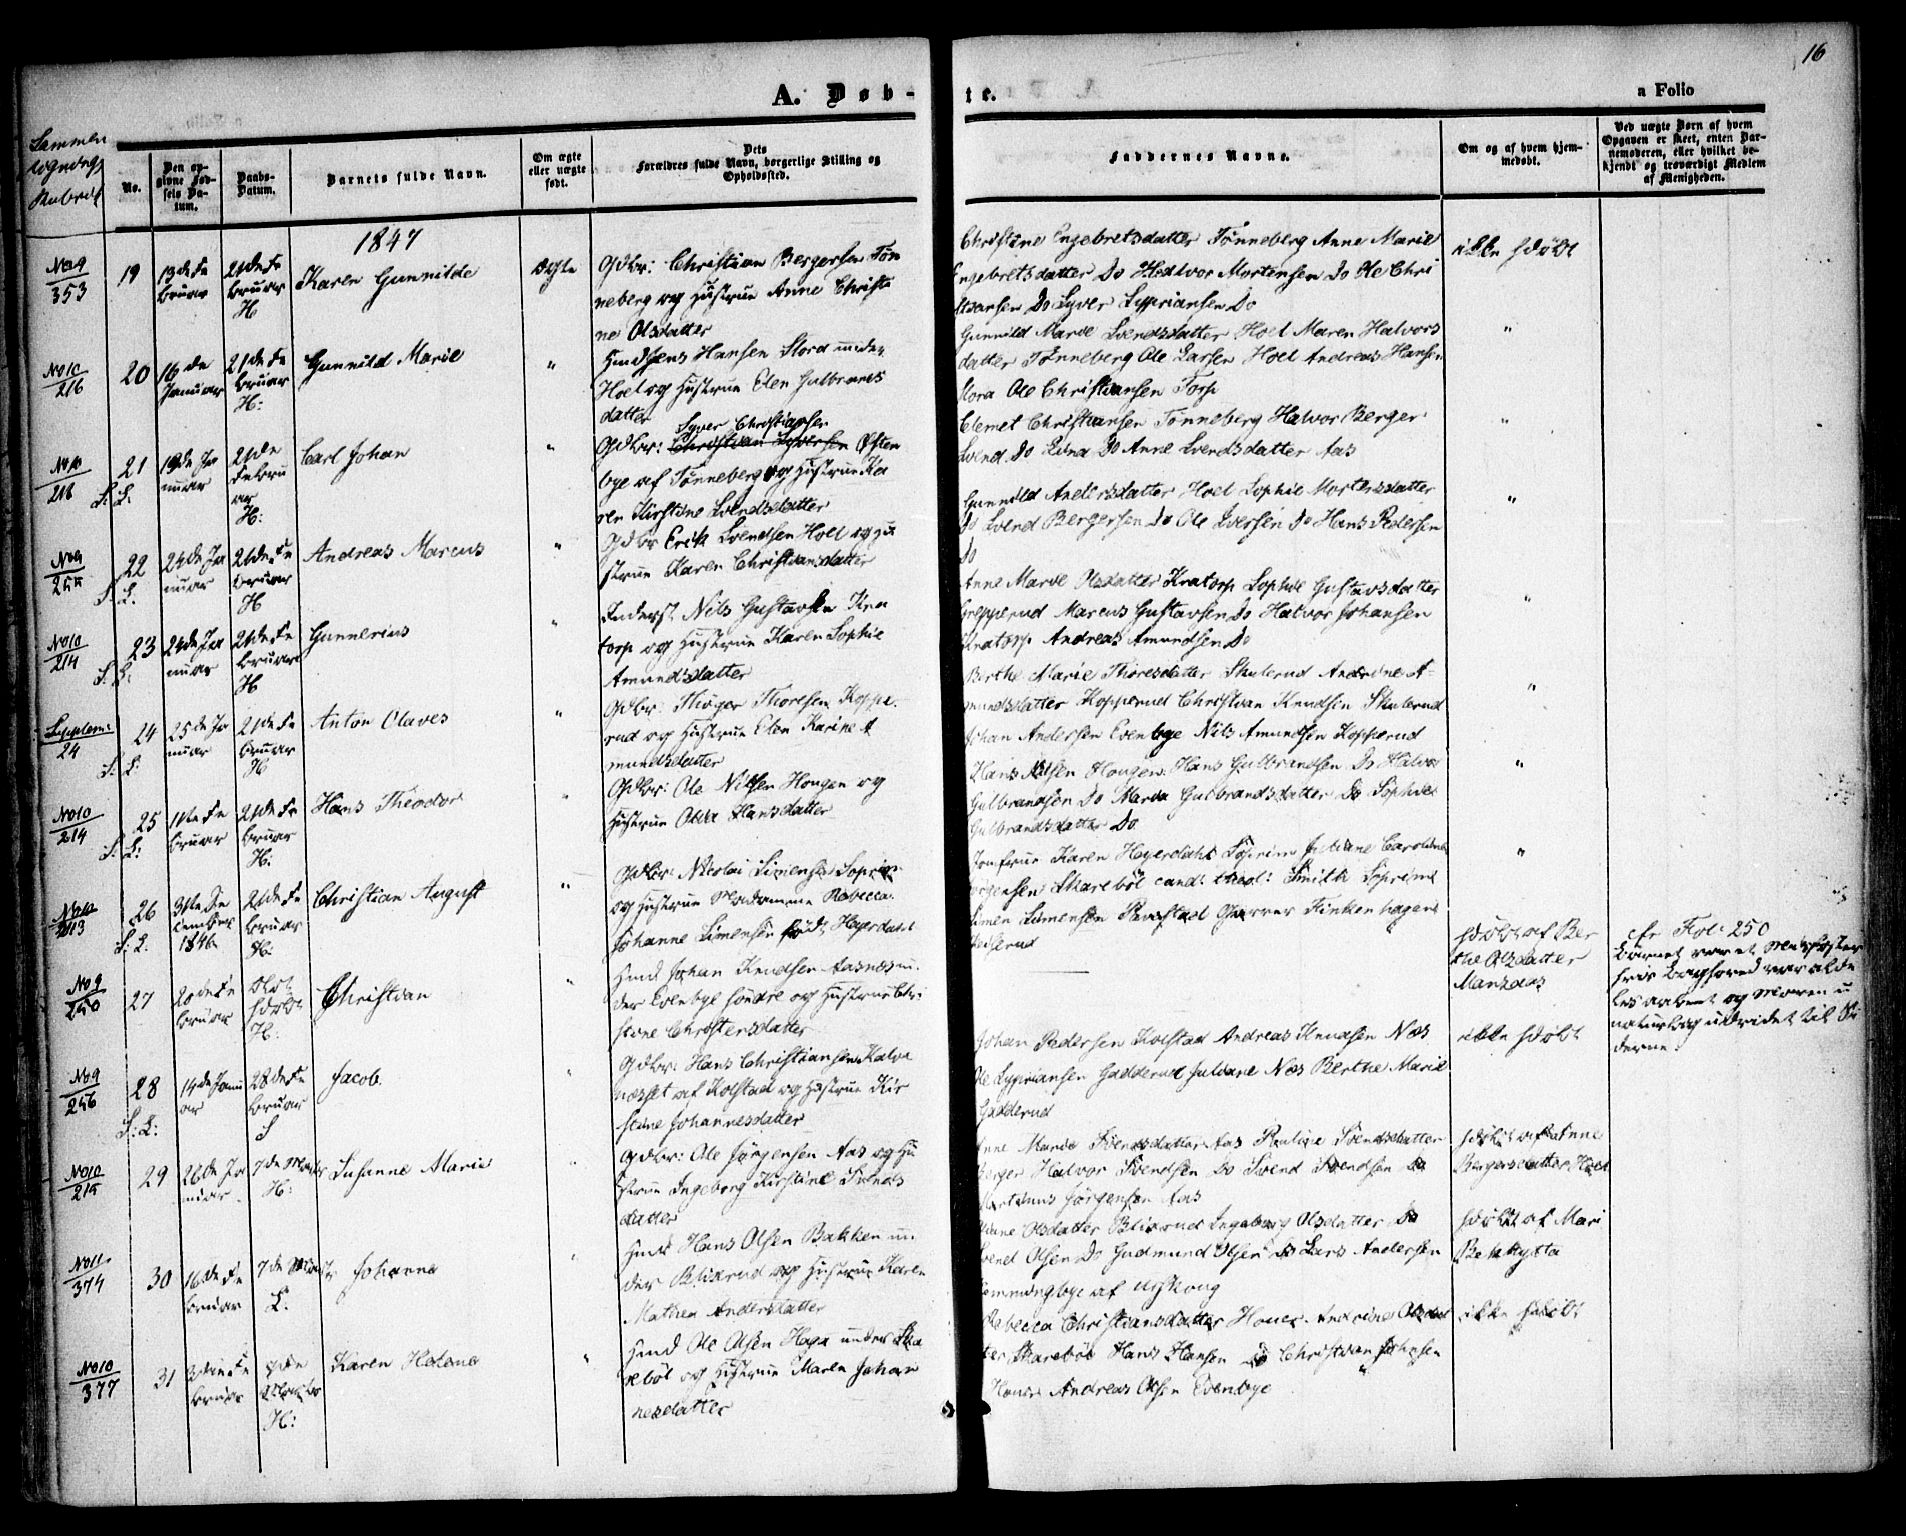 16
A. Døb-
te.
a Folio
Sammen
No.
Den op-
givne Fød-
sels Da-
tum.
Daabs-
Datum.
Barnets fulde Navn.
Om ægte
eller uægte
født.
Dets
Forældres fulde Navn, borgerlige Stilling og
Opholdssted.
Faddernes Navne.
Om og af hvem hjem-
medøbt.
Ved uægte Børn af hvem
Opgaven er skeet, enten Bar-
nemoderen, eller hvilket be-
kjendt og troværdigt Medlem
af Menigheden.
1847
No 9
353
19
13de Fe
bruar
21de Fe
bruar
H
Karen Gunnilde
Ægte
Gdbr: Christian Bergersen Tøn
neberg og Hustrue Anne Christi
ne Olsdatter
Christine Engebretsdatter Tønneberg Anne Marie
Engebretsdatter Do Hedvor Mortensen Do Ole Chri
stiansen Do Syver Sypriansen Do
ikke hdøbt
No 10
216
20
16de
Januar
21de Fe
bruar
H:
Gunnild Marie
"
Huusm Jens Hansen Stord under
Hoel og Hustrue Elen Gulbrands
datter
Gunnild Marie Svendsdatter Hoel Maren Halvors
datter Tønneberg Ole Larsen Hoel Andreas Hansen
Stora Ole Christiansen Torp
"
No 10
218
21
S: L.
19de Ja
nuar
21de
Febru
ar
H:
Carl Johan
"
Syver Christiansen
Gdbr: Christian Syversen Østen
bye af Tønneberg og Hustrue Ka
ren Kirstine Svendsdatter
Clemet Christiansen Tønneberg Halvor Berger
Svend Do Lina Do Anne Svendsdatter Aas
"
No 9
255
22
S: L.
24de Ja
nuar
21de Fe
bruar
H
Andreas Marcus
"
Gdbr Erik Svendsen Hoel og Hu
strue Karen Christiansdatter
Gunnild Andersdatter Hoel Sophie Mortensdatter
Do Svend Bergersen Do Ole Iversen Do Hans Pedersen
Do
"
No 10
214
23
S: L.
24de Ja
nuar
21de Fe
bruar
H
Gunnerius
"
Inderst Nils Gustavsen Kra
torp og Hustrue Karen Sophie
Amundsdatter
Anne Marie Olsdatter Kratorp Sophie Gustavsdatter
Grepperud Marcus Gustavsen Do Halvor Johansen
Kratorp Andreas Amundsen Do
"
Supplem:
24
24
S: L:
25de Ja
nuar
21de Fe
bruar
H
Anton Olaves
"
Gdbr: Thoger Thoresen Koppe
rud og Hustrue Elen Karine A
mundsdatter
Berthe Marie Thoresdatter Skulerud Andrine A-
mundsdatter Kopperud Christian Knudsen Skulerud
Johan Andersen Evenbye Nils Amundsen Kopperud
"
No 10
214
25
S: L:
11te Fe
bruar
21de Fe
bruar
H:
Hans Theodor
"
Gdbr: Ole Nilsen Hougen og
Hustrue Olia Hansdatter
Hans Nilsen Hougen Hans Gulbrandsen Do Halvor
Gulbrandsen Do Maria Gulbrandsdatter Do Sophie
Gulbrandsdatter Do
"
No 10
213
26
S: L.
31te De
cember
1846
21de Fe
bruar
H.
Christian August
"
Gdbr: Nicolai Simensen Soprim
og Hustrue Madamme Rebecca
Johanne Simensen fød Heyerdahl
Jomfrue Karen Heyerdahl Soprim Juliane Caroline
Jørgensen Skarebøl cand: theol: Smith Soprim
Simen Simensen
"
No 9
250
27
20de Fe
bruar
hdøbt
H:
Christian
"
Huusm Johan Knudsen Aasnes u
der Evenbye søndre og Hustrue Chri
stine Christensdatter
hdøbt af Ber
the Olsdatter
cfr Fol: 250
No 9
256
28
S: L:
14de Janu
ar
28de Fe
bruar
S
Jacob.
"
Gdbr: Hans Christiansen Kalve
næsset af Kolstad og Hustrue Kir
stine Johannesdatter
Johan Pedersen Kolstad Andreas Knudsen Næs
Ole Sypriansen Gadderud Juliane Næs Berthe Marie
Gadderud
ikke hdøbt
No 10
215
29
26de Ja
nuar
7de Marts
H:
Susanne Marie
"
Gdbr: Ole Jørgensen Aas og Hu
strue Ingeborg Kirstine Svends
datter
Anne Marie Svendsdatter Aas Pauline Svendsdatter
Berger Halvor Svendsen Do Svend Svendsen Do
Martinus Jørgensen Aas
hdøbt af Anne
Bergersdatter Hoel
No 11
374
30
16de Fe
bruar
7de Marts
L.
Johanne
"
Huusm Hans Olsen Bakken un
der Blixrud og Hustrue Karen
Mathea Andersdatter
Olsdatter Blixrud Ingeborg Olsdatter Do
Svend Olsen Do Gudmund Olsen Do Lars Andersen
Hemmingbye af Urskoug
hdøbt af Mari
Bekkytta
No 10
377
31
bruar
7de
Marts
H:
Karen Helene
"
Huusm Ole Olsen Haga under Ska
rebøl og Hustrue Maren Johan
nesdatter
Rebecca Christiansdatter Houer Andrine Olsdat
ter Skarebøl Hans Hansen Do Christian Johnsen
Houer Andreas Olsen Evenbye
ikke hdøbt